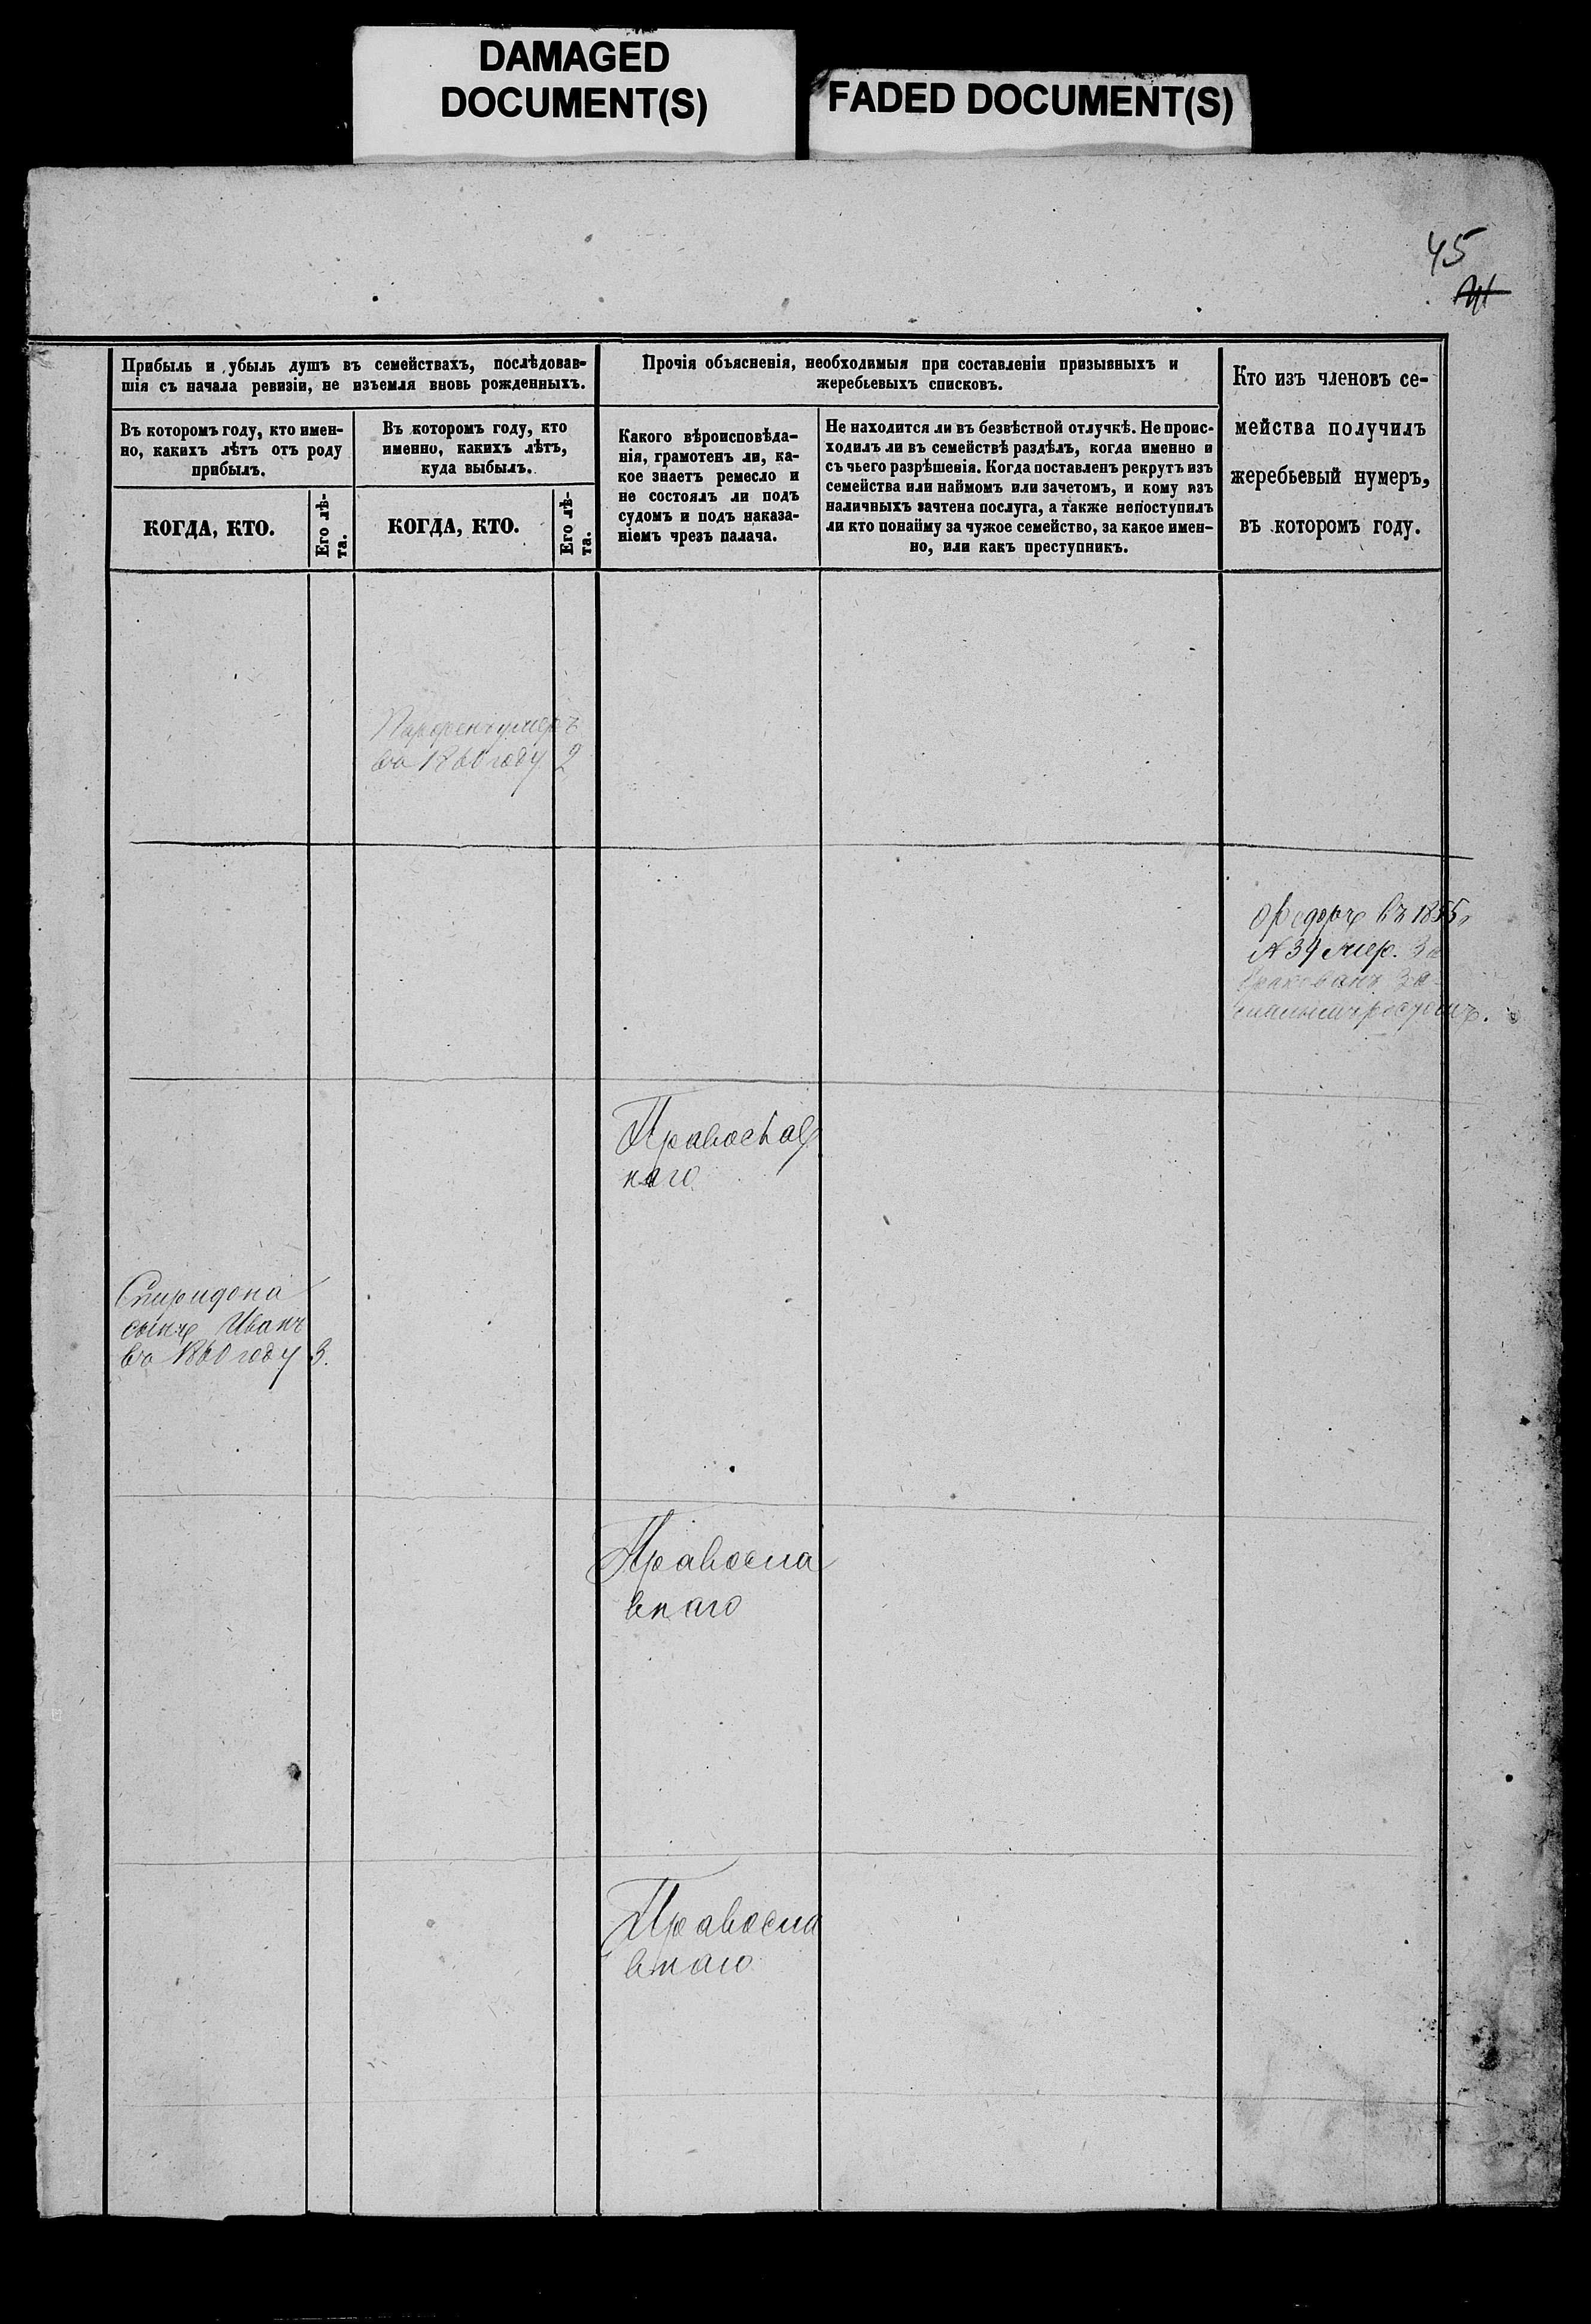 DAMAGED
DOCUMENT(S)
FADED DOCUMENT(S)
45
Прибыль и убыль душъ въ семействахъ, послѣдовав-
шія съ начала ревизіи, не изъемля вновь рожденныхъ.
Прочія объясненія, необходимыя при составленіи призывныхъ и
жеребьевыхъ списковъ.
Кто изъ членовъ се-
мейства получилъ
жеребьевый нумеръ,
въ которомъ году.
Въ которомъ году, кто имен-
но, какихъ лѣтъ отъ роду
прибылъ.
Въ которомъ году, кто
именно, какихъ лѣтъ,
куда выбылъ.
Какого вѣроисповѣда-
нія, грамотенъ ли, ка-
кое знаетъ ремесло и
не состоялъ ли подъ
судомъ и подъ наказа-
ніемъ чрезъ палача.
Не находится ли въ безвѣстной отлучкѣ. Не проис-
ходилъ ли въ семействѣ раздѣлъ, когда именно и
съ чьего разрѣшенія. Когда поставленъ рекрутъ изъ
семейства или наймомъ или зачетомъ, и кому изъ
наличныхъ зачтена послуга, а также непоступилъ
ли кто понайму за чужое семейство, за какое имен-
но, или какъ преступникъ.
КОГДА, КТО.
Его лѣ-
та.
КОГДА, КТО.
Его лѣ-
та.
Парфенъ умеръ
въ 1860 году 2
Ѳедоръ въ 1855
№ 34 За
бракованъ за
малымъ ростомъ.
Православ
наго
Спиридона
сынъ Иванъ
въ 1860 году 3.
Правосла
внаго
Правосла
внаго